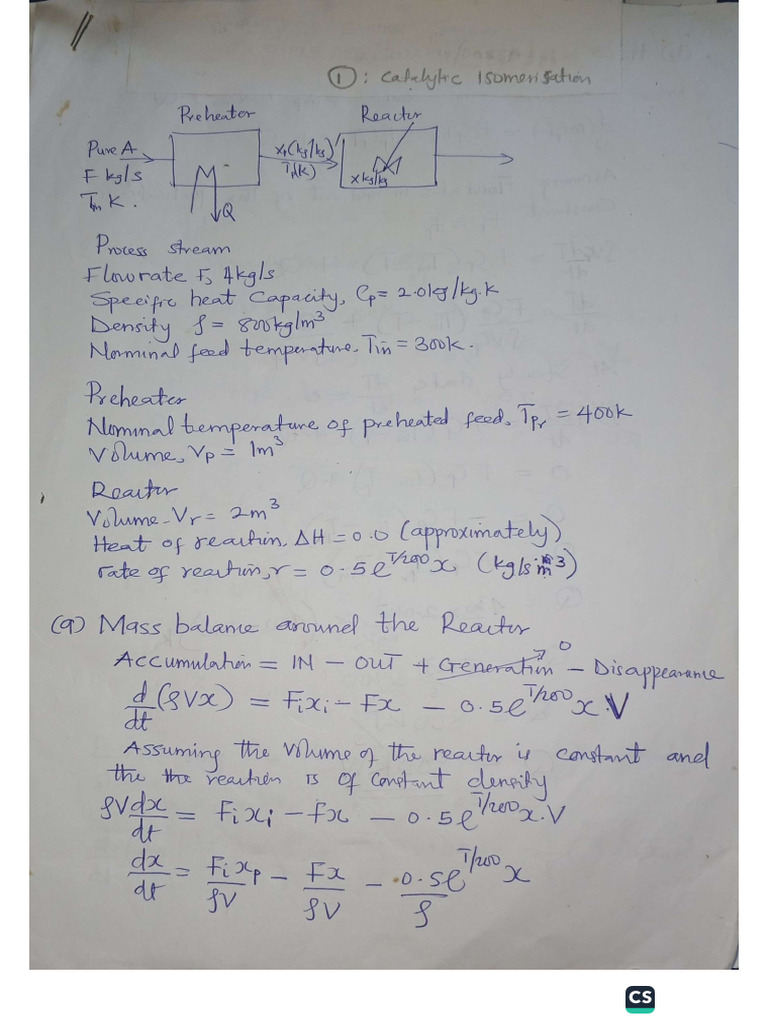 ①: Catalytic Isomerisation
Preheater
Reactor
Pure A
F kg/s
Tin K.
Q
x kg/kg
Process stream
Flowrate F, 4kg/s
Specific heat Capacity, Cp = 2.0kg/kg.K
Density ρ = 800kg/m³
Norminal feed temperature. Tin = 300K.
Preheater
Nominal temperature of preheated feed, Tpr = 400K
Volume, Vp = 1m³
Reactor
Volume - Vr = 2m³
Heat of reaction, ΔH = 0.0 (approximately)
rate of reaction, r = 0.5e^T/200 x (kg/s m³)
(a) Mass balance around the Reactor
Accumulation = IN - OUT + Generation→0 - Disappearance
d/dt (ρVx) = Fixi - Fx - 0.5e^T/200 x.V
Assuming the Volume of the reactor is constant and
the the reaction is of constant density
ρV dx/dt = Fixi - Fx - 0.5e^T/200 x.V
dx/dt = Fixp/ρV - Fx/ρV - 0.5e^T/200 x/ρ
CS